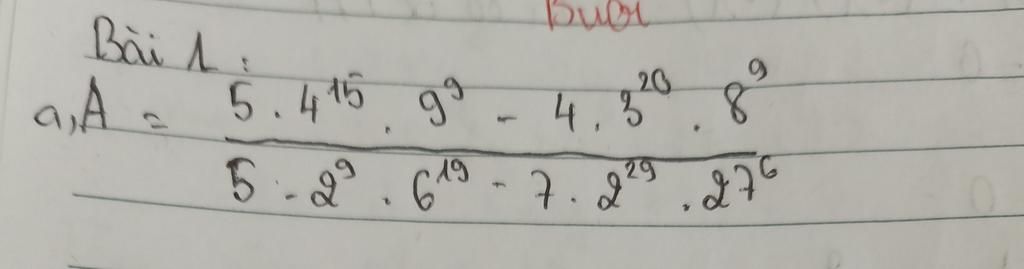 Buổi
Bài 1:
a, A = \frac{5 . 4^{15} . 9^9 - 4 . 3^{20} . 8^9}{5 . 2^9 . 6^{19} - 7 . 2^{29} . 27^6}